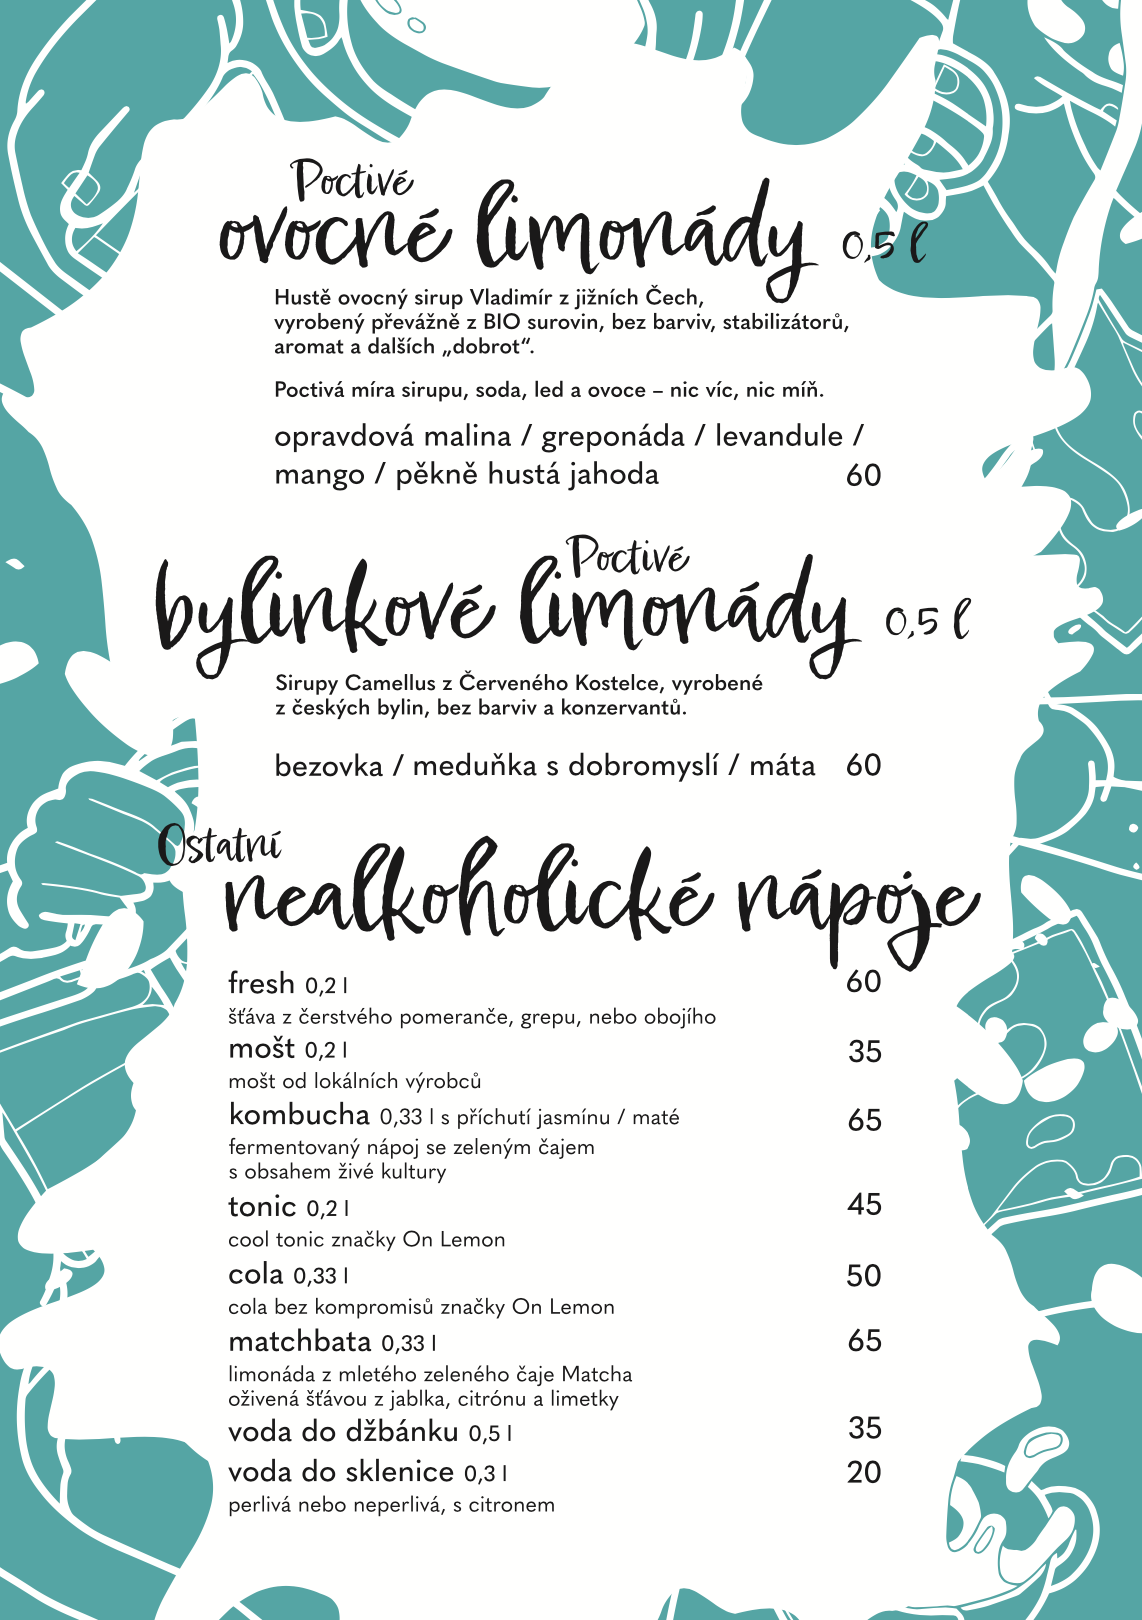 Poctivé
ovocné limonády 0,5 l
Hustě ovocný sirup Vladimír z jižních Čech,
vyrobený převážně z BIO surovin, bez barviv, stabilizátorů,
aromat a dalších „dobrot“.
Poctivá míra sirupu, soda, led a ovoce – nic víc, nic míň.
opravdová malina / greponáda / levandule /
mango / pěkně hustá jahoda 60
Poctivé
bylinkové limonády 0,5 l
Sirupy Camellus z Červeného Kostelce, vyrobené
z českých bylin, bez barviv a konzervantů.
bezovka / meduňka s dobromyslí / máta 60
Ostatní
nealkoholické nápoje
fresh 0,2 l 60
šťáva z čerstvého pomeranče, grepu, nebo obojího
mošt 0,2 l 35
mošt od lokálních výrobců
kombucha 0,33 l s příchutí jasmínu / maté 65
fermentovaný nápoj se zeleným čajem
s obsahem živé kultury
tonic 0,2 l 45
cool tonic značky On Lemon
cola 0,33 l 50
cola bez kompromisů značky On Lemon
matchbata 0,33 l 65
limonáda z mletého zeleného čaje Matcha
oživená šťávou z jablka, citrónu a limetky
voda do džbánku 0,5 l 35
voda do sklenice 0,3 l 20
perlivá nebo neperlivá, s citronem